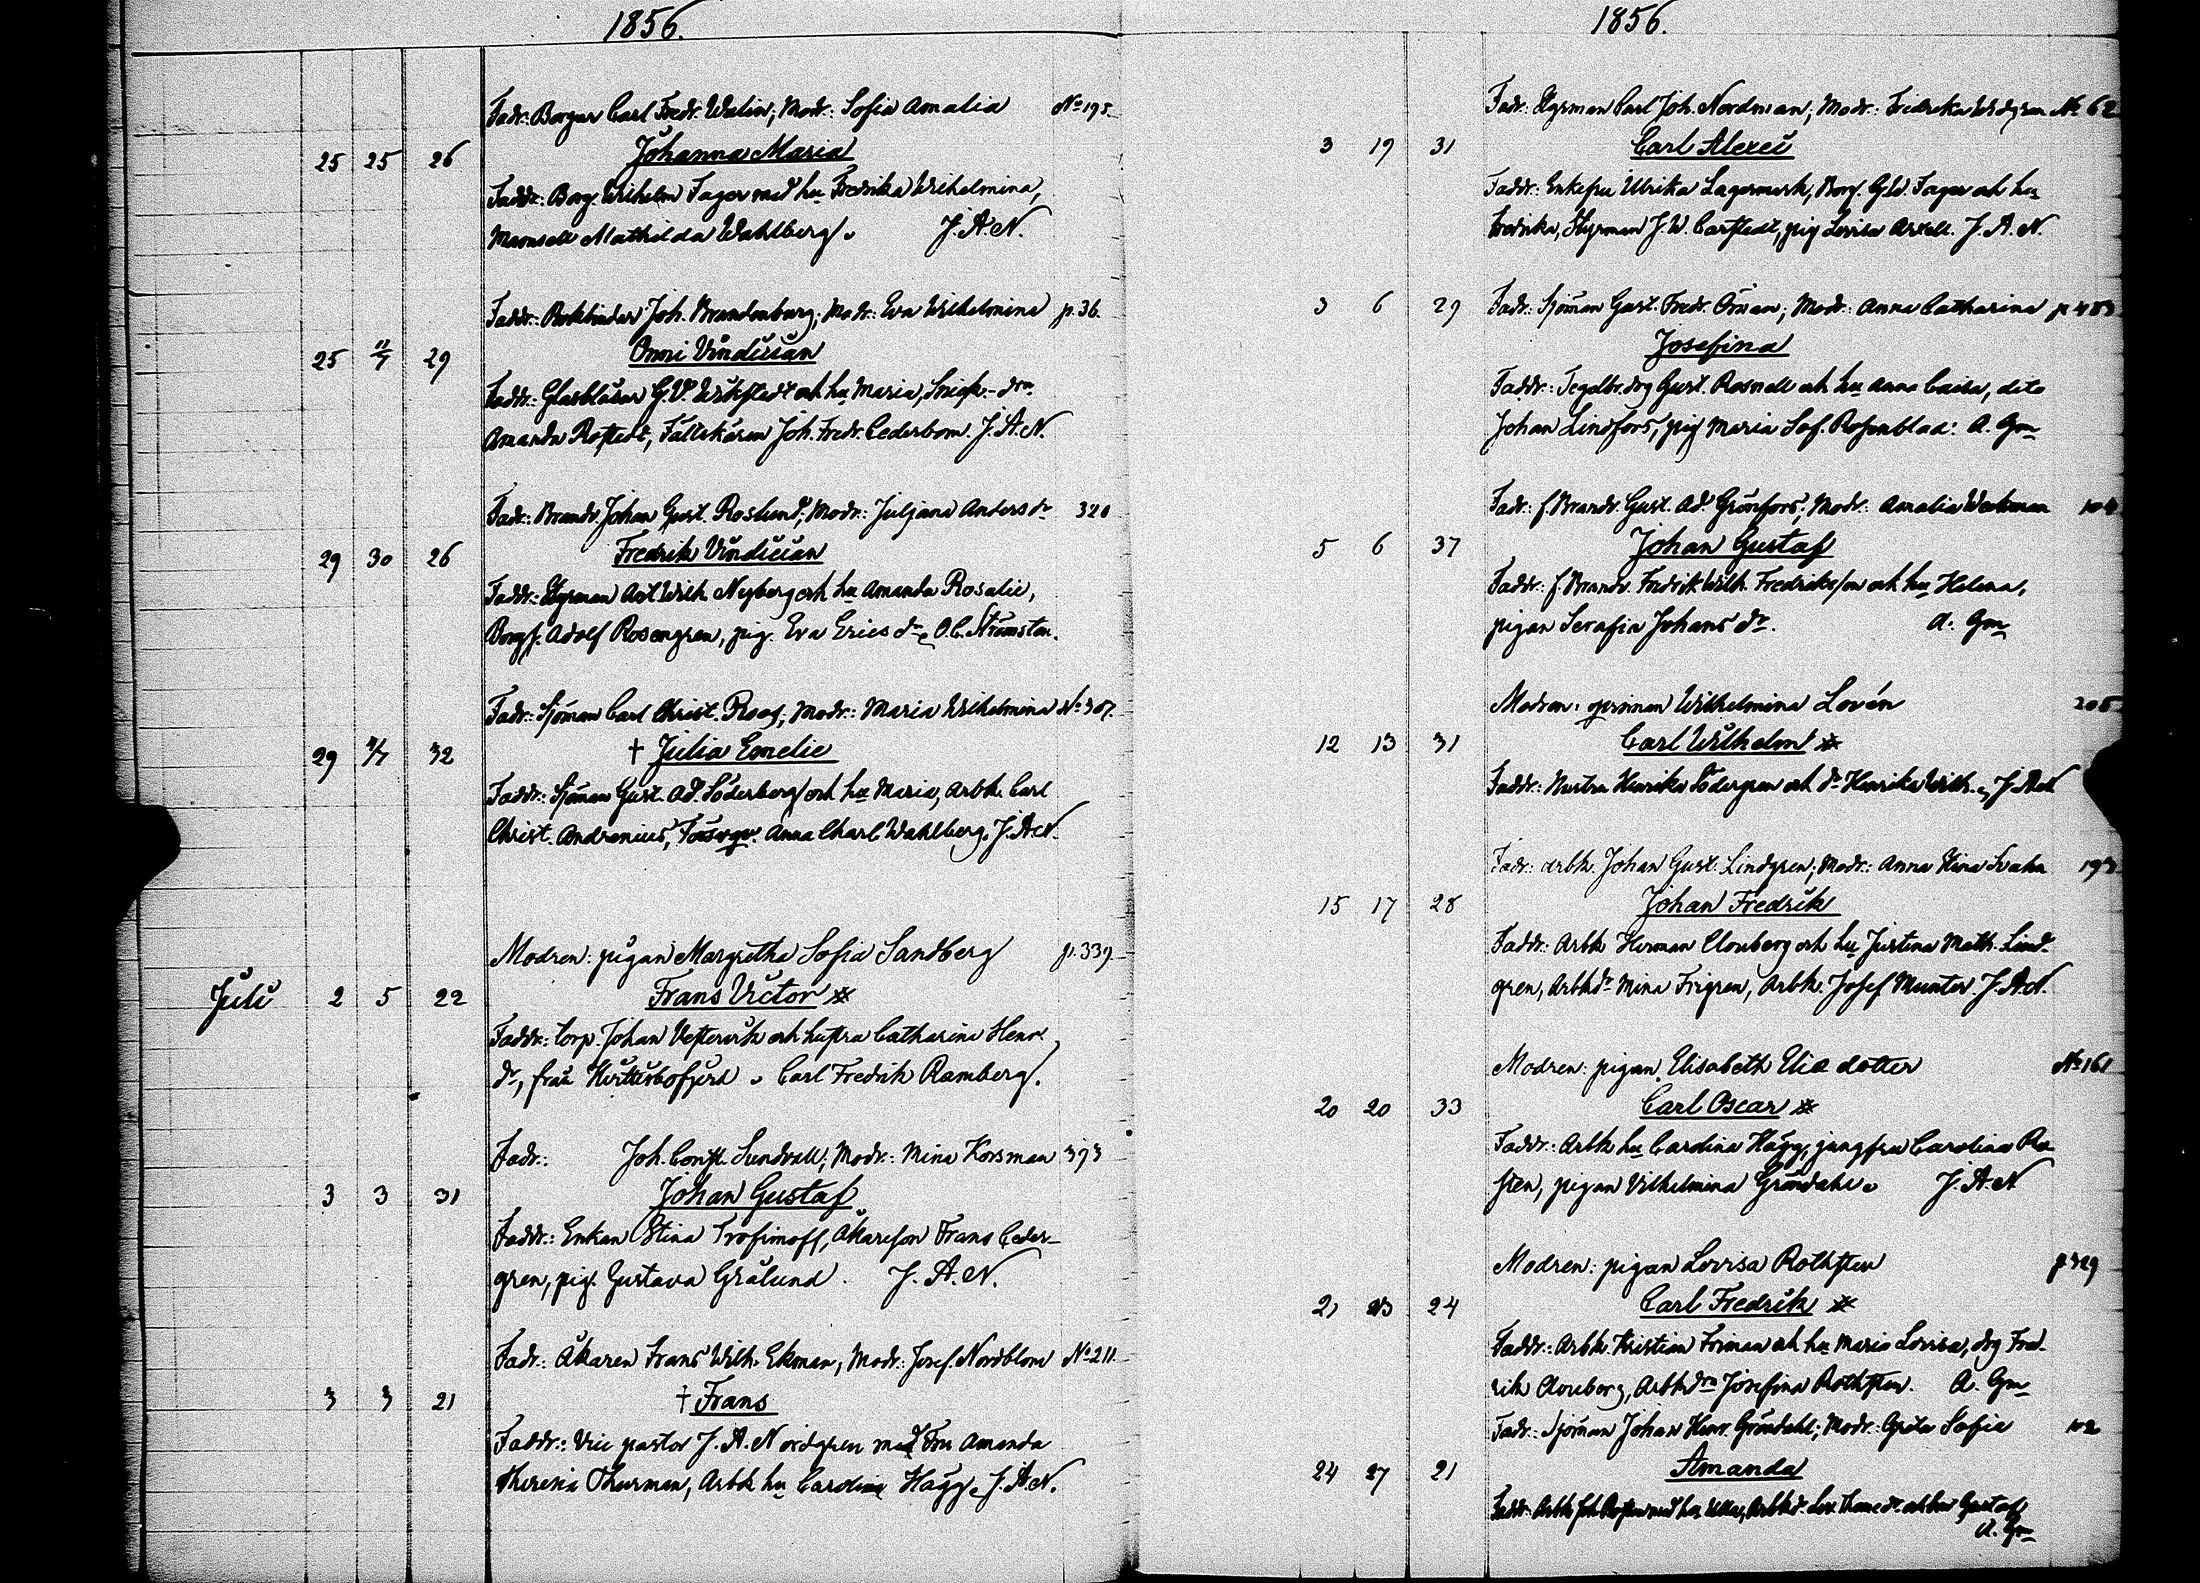 1856.
Fadr: Borgar Carl Fredr. Walin; Modr: Sofia Amalia No 195.
25 25 26 Johanna Maria
Faddr: Borg. Wilhelm Fager med hu Fredrika Wilhelmina,
Mamsell Mathilda Wahlberg. J. A. N.
Faddr: Bokbindar Joh. Brandenburg; Modr: Eva Wilhelmina p. 36
25 29 Onni
Faddr: Glasblåsar G. W. och hu Maria,
Amanda Joh. Fredr. Cederbom. J. A. N.
Fadr: Brandv. Johan Gust. Roslund; Modr: Juljana Anders dr 320
29 30 26 Fredrik
Faddr: Styrman Axt Wilh. Nyberg och hu Amanda Rosalie,
Adolf Rosengren, pig. Eva Erics dr. O. C. Strömsten.
Fadr: Sjöman Carl Christ. Roos; Modr: Maria Wilhelmina No 307.
29 32 † Julia Emelie
Faddr: Sjöman Gust. Ad. Söderberg och hu Maria, Arbk. Carl
Christ. Andronius, Anna Charl. Wahlberg. J. A. N.
Modren: pigan Margretha Sofia Sandberg p. 339
Juli 2 5 22 Frans Victor
Faddr: torp. Johan och hustru Catharina Henr.
dr, från Carl Fredrik Ramberg.
Fadr: Joh. Const. Sundvall; Modr: Mina Korsman 393
3 3 31 Johan Gustaf
Faddr: Enkan Stina Trofimoff, Åkareson Frans Ceder-
gren, pig. Gustava Grålund. J. A. N.
Fadr: Åkaren Frans Wilh. Ekman; Modr: Josef. Nordblom No 211
3 3 21 † Frans
Faddr: Vice pastor J. A. Nordgren med Fru Amanda
Theresia Thurman, Arbk hu Carolina Hägg. J. A. N.
1856.
Fadr: Styrman Carl Joh. Nordman; Modr: Fredrika No 62
3 19 31 Carl Alexei
Faddr: Enkefru Ulrika Lagermark, Borg. G. W. Fager och hu
Fredrika, Styrman J. W. Carstedt, pig Lovisa Axell. J. A. N.
3 6 29 Fadr: Sjöman Gust. Fredr. Öman; Modr: Anna Catharina
Josefina
Faddr: Tegelbr. drg Gust. Rosnell och hu Anna Caisa, dito
Johan Lindfors, pig Maria Sof. Rosenblad. A. Gm
Fadr: f. Brandv. Gust. Ad. Grönfors; Modr: Amalia Wekman 104
5 6 37 Johan Gustaf
Faddr: f. Brandv. Fredrik Wilh. Fredriksson och hu Helena,
pigan Serafia Johans dr. A. Gm
Modren: Wilhelmina Lovén
12 13 31 Carl Wilhelm
Faddr: Hustru Henrika Södergren och dr Henrika Wilh. J. A. N
Fadr: arbk. Johan Gust. Lindgren; Modr: Anna Stina Svahn 193
15 17 28 Johan Fredrik
Faddr: Arbk Herman Clouberg och hu Justina Math. Lind-
gren, Arbk dr Mina Frigren, Arbk. Josef Munter J. A. N.
Modren: pigan Elisabeth Elia dotter No 161
20 20 33 Carl Oscar
Faddr: Arbk hu Carolina Hägg, jungfru Carolina Ro-
sten, pigan Vilhelmina Gröndahl. J. A. N
Modren: pigan Lovisa Rothsten p 329
21 23 24 Carl Fredrik
Faddr: Arbk. Kristian Forman och hu Maria Lovisa, drg Fred-
rik Clouberg, Arbk drn Josefina Rothsten. A. Gm
Fadr: Sjöman Johan Henr. Gröndahl; Modr: Greta Sofia 102
24 27 21 Amanda
Faddr: Arbk Joh. med hu Gustaf
A. Gm